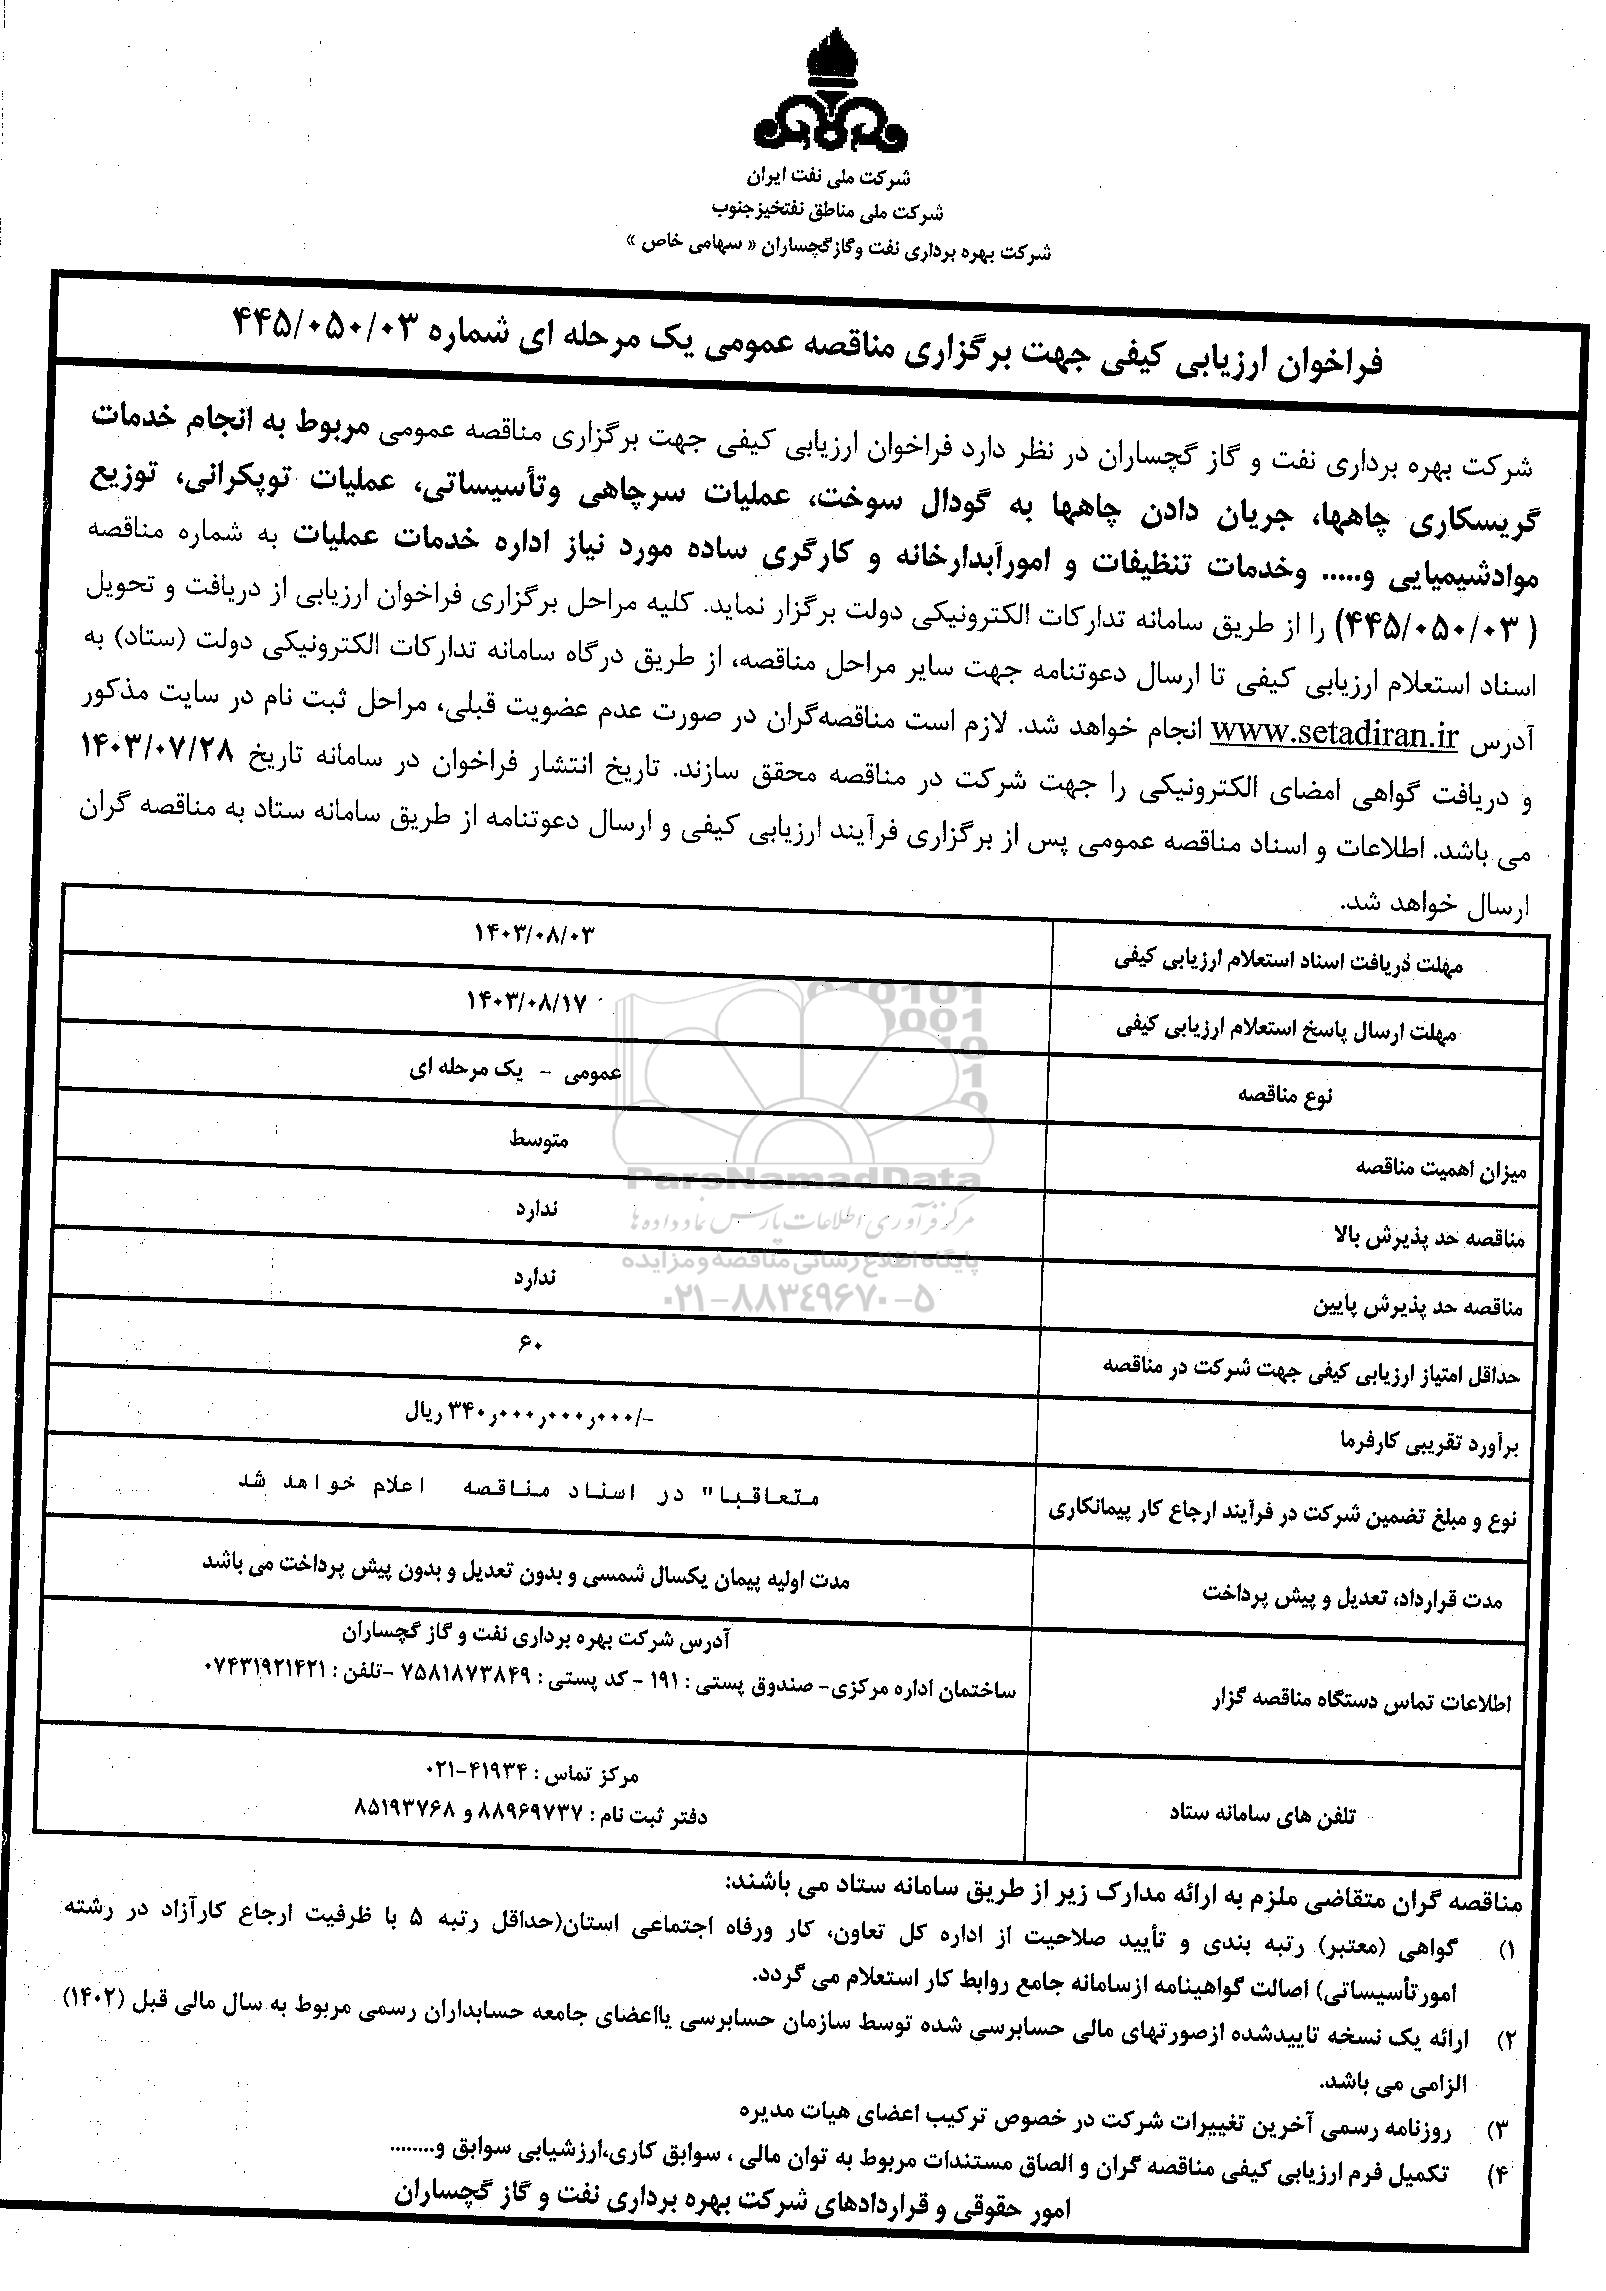 شرکت ملی نفت ایران
شرکت ملی مناطق نفتخیزجنوب
شرکت بهره برداری نفت وگازگچساران « سهامی خاص »
فراخوان ارزیابی کیفی جهت برگزاری مناقصه عمومی یک مرحله ای شماره ۴۴۵/۰۵۰/۰۳
شرکت بهره برداری نفت و گاز گچساران در نظر دارد فراخوان ارزیابی کیفی جهت برگزاری مناقصه عمومی مربوط به انجام خدمات
گریسکاری چاهها، جریان دادن چاهها به گودال سوخت، عملیات سرچاهی وتأسیساتی، عملیات توپکرانی، توزیع
موادشیمیایی و..... وخدمات تنظیفات و امورآبدارخانه و کارگری ساده مورد نیاز اداره خدمات عملیات به شماره مناقصه
( ۴۴۵/۰۵۰/۰۳) را از طریق سامانه تدارکات الکترونیکی دولت برگزار نماید. کلیه مراحل برگزاری فراخوان ارزیابی از دریافت و تحویل
اسناد استعلام ارزیابی کیفی تا ارسال دعوتنامه جهت سایر مراحل مناقصه، از طریق درگاه سامانه تدارکات الکترونیکی دولت (ستاد) به
آدرس www.setadiran.ir انجام خواهد شد. لازم است مناقصه‌گران در صورت عدم عضویت قبلی، مراحل ثبت نام در سایت مذکور
و دریافت گواهی امضای الکترونیکی را جهت شرکت در مناقصه محقق سازند. تاریخ انتشار فراخوان در سامانه تاریخ ۱۴۰۳/۰۷/۲۸
می باشد. اطلاعات و اسناد مناقصه عمومی پس از برگزاری فرآیند ارزیابی کیفی و ارسال دعوتنامه از طریق سامانه ستاد به مناقصه گران
ارسال خواهد شد.
مهلت دریافت اسناد استعلام ارزیابی کیفی ۱۴۰۳/۰۸/۰۳
مهلت ارسال پاسخ استعلام ارزیابی کیفی ۱۴۰۳/۰۸/۱۷
نوع مناقصه عمومی - یک مرحله ای
میزان اهمیت مناقصه متوسط
مناقصه حد پذیرش بالا ندارد
مناقصه حد پذیرش پایین ندارد
حداقل امتیاز ارزیابی کیفی جهت شرکت در مناقصه ۶۰
برآورد تقریبی کارفرما -/۳۴۰ر۰۰۰ر۰۰۰ر۰۰۰ ریال
نوع و مبلغ تضمین شرکت در فرآیند ارجاع کار پیمانکاری متعاقبا" در اسناد مناقصه اعلام خواهد شد
مدت قرارداد، تعدیل و پیش پرداخت مدت اولیه پیمان یکسال شمسی و بدون تعدیل و بدون پیش پرداخت می باشد
اطلاعات تماس دستگاه مناقصه گزار آدرس شرکت بهره برداری نفت و گاز گچساران
ساختمان اداره مرکزی- صندوق پستی : ۱۹۱ - کد پستی : ۷۵۸۱۸۷۳۸۴۹ -تلفن : ۰۷۴۳۱۹۲۱۴۲۱
تلفن های سامانه ستاد مرکز تماس : ۴۱۹۳۴-۰۲۱
دفتر ثبت نام : ۸۸۹۶۹۷۳۷ و ۸۵۱۹۳۷۶۸
ParsNamadData
مرکز فرآوری اطلاعات پارس نماد داده ها
پایگاه اطلاع رسانی مناقصه و مزایده
۰۲۱-۸۸۳۴۹۶۷۰-۵
مناقصه گران متقاضی ملزم به ارائه مدارک زیر از طریق سامانه ستاد می باشند:
۱) گواهی (معتبر) رتبه بندی و تأیید صلاحیت از اداره کل تعاون، کار ورفاه اجتماعی استان(حداقل رتبه ۵ با ظرفیت ارجاع کارآزاد در رشته
امورتأسیساتی) اصالت گواهینامه ازسامانه جامع روابط کار استعلام می گردد.
۲) ارائه یک نسخه تاییدشده ازصورتهای مالی حسابرسی شده توسط سازمان حسابرسی یااعضای جامعه حسابداران رسمی مربوط به سال مالی قبل (۱۴۰۲)
الزامی می باشد.
۳) روزنامه رسمی آخرین تغییرات شرکت در خصوص ترکیب اعضای هیات مدیره
۴) تکمیل فرم ارزیابی کیفی مناقصه گران و الصاق مستندات مربوط به توان مالی ، سوابق کاری،ارزشیابی سوابق و........
امور حقوقی و قراردادهای شرکت بهره برداری نفت و گاز گچساران